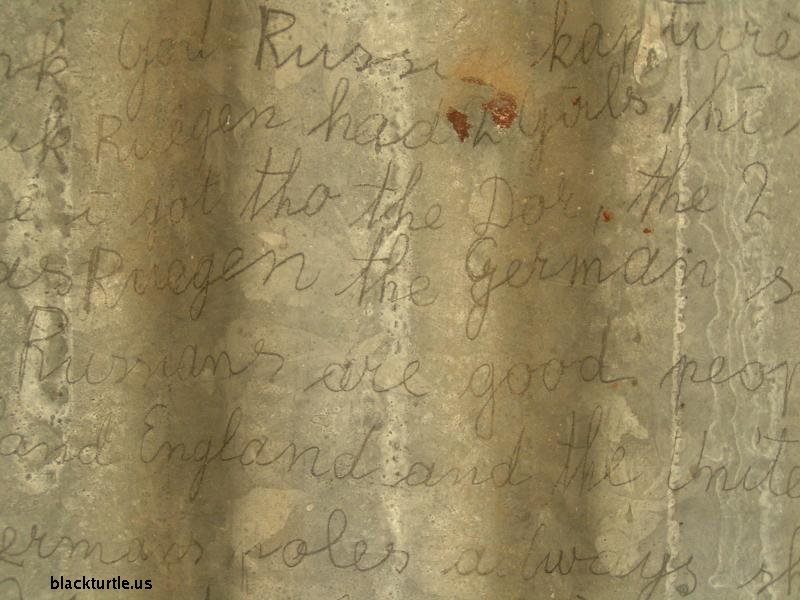 you Russi kapture
Ruegen had 2 girls, hi
e i got tho the Dor, the 2
as Ruegen the German s
Russians are good peop
and England and the Unite
ermans poles always sh
blackturtle.us